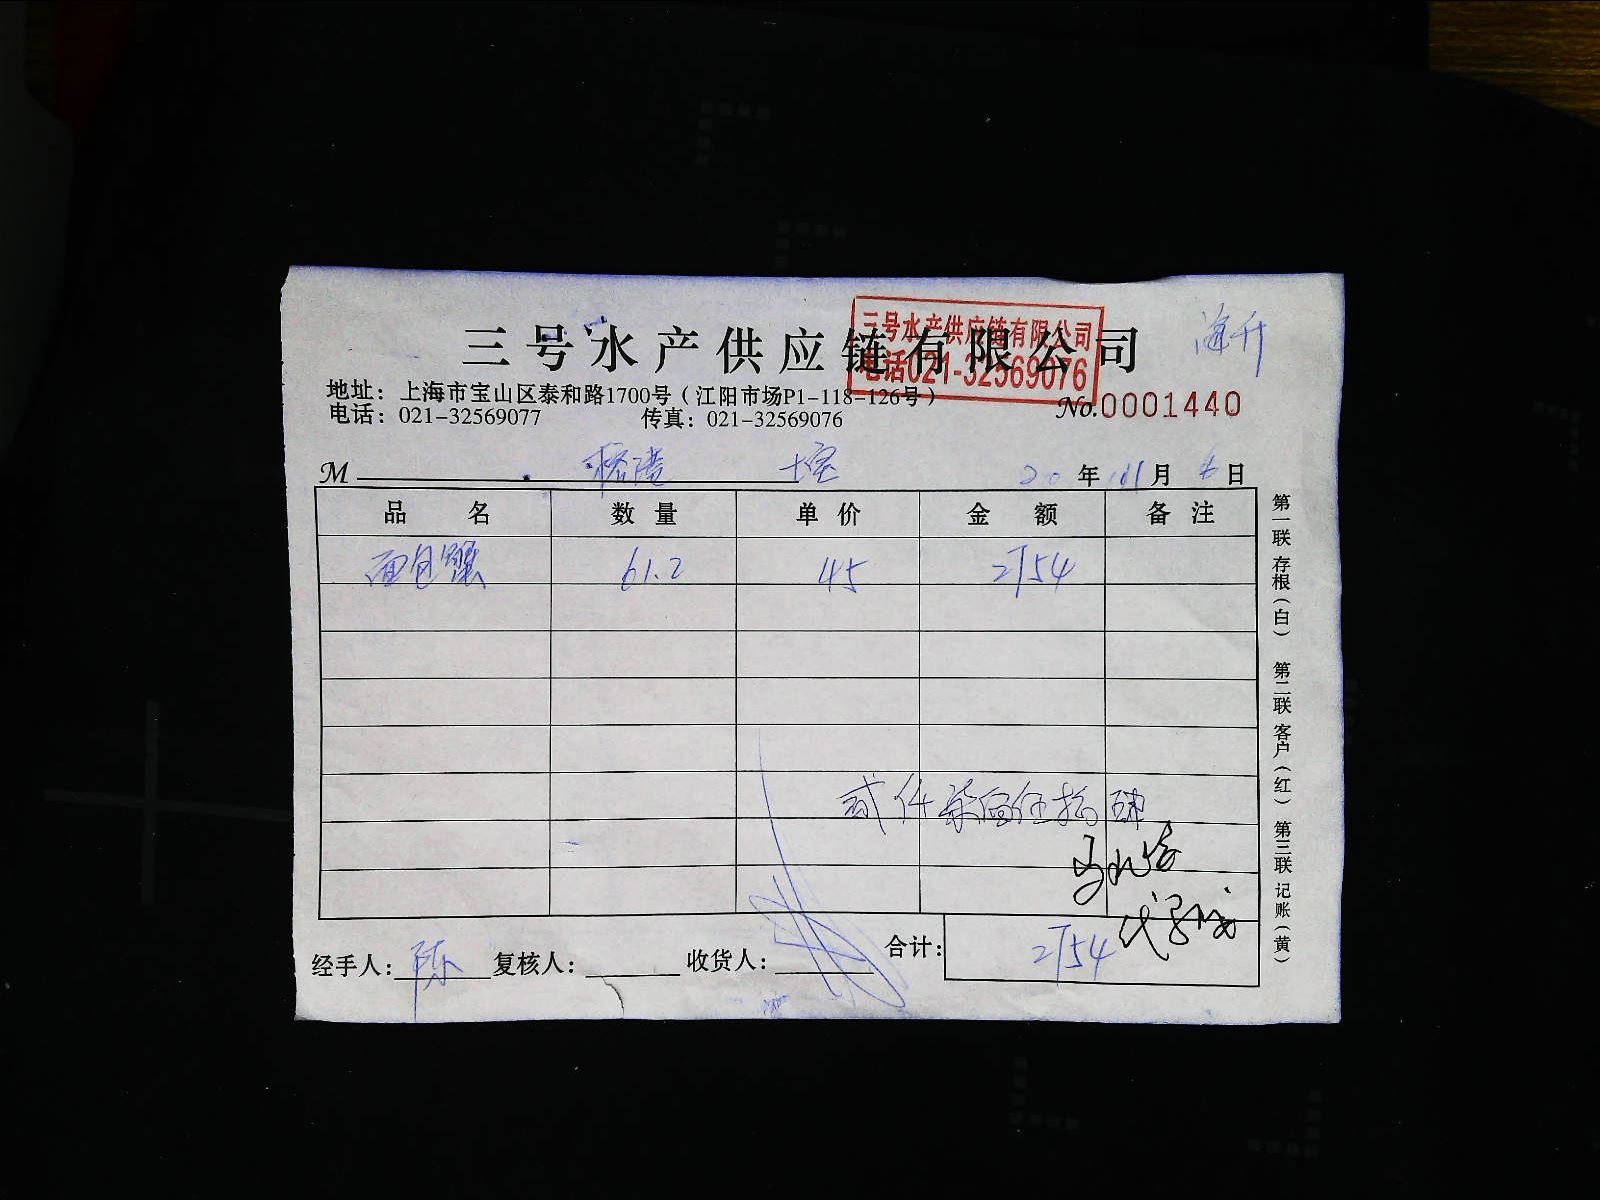 三号水产供应链有限公司
三号水产供应链有限公司
电话021-32569076
地址：上海市宝山区泰和路1700号（江阳市场P1-118-126号）
电话：021-32569077 传真：021-32569076
No.0001440
M 20年 月 日
品名 数量 单价 金额 备注
面包蟹 61.2 45 2754
贰仟柒佰伍拾肆
合计：2754
经手人：陈 复核人： 收货人：
第一联 存根（白） 第二联 客户（红） 第三联 记账（黄）